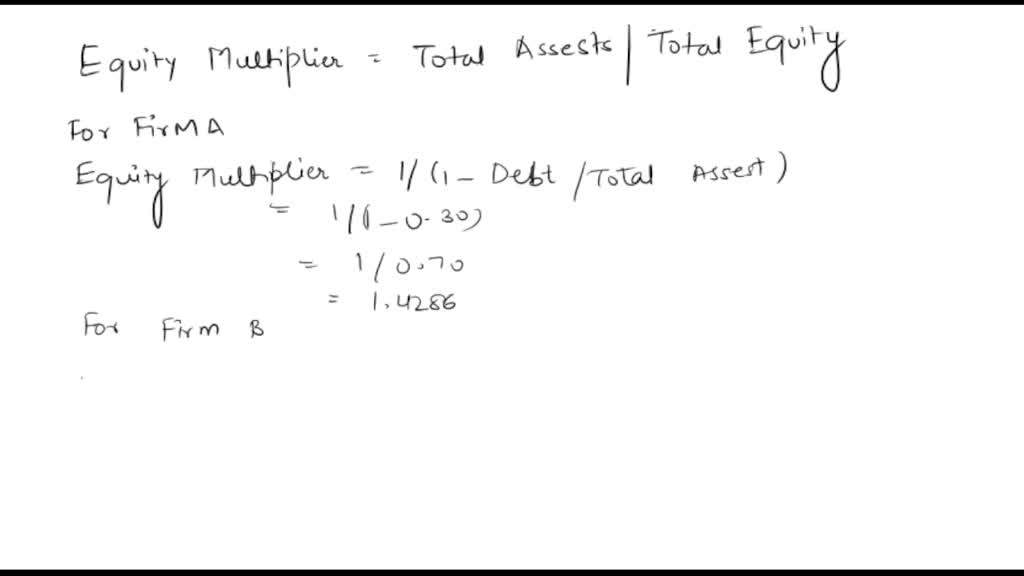 Equity Multiplier = Total Assests | Total Equity
For Firm A
Equity Multiplier = 1/(1 - Debt /Total Assest)
= 1/(1-0.30)
= 1/0.70
= 1.4286
For Firm B